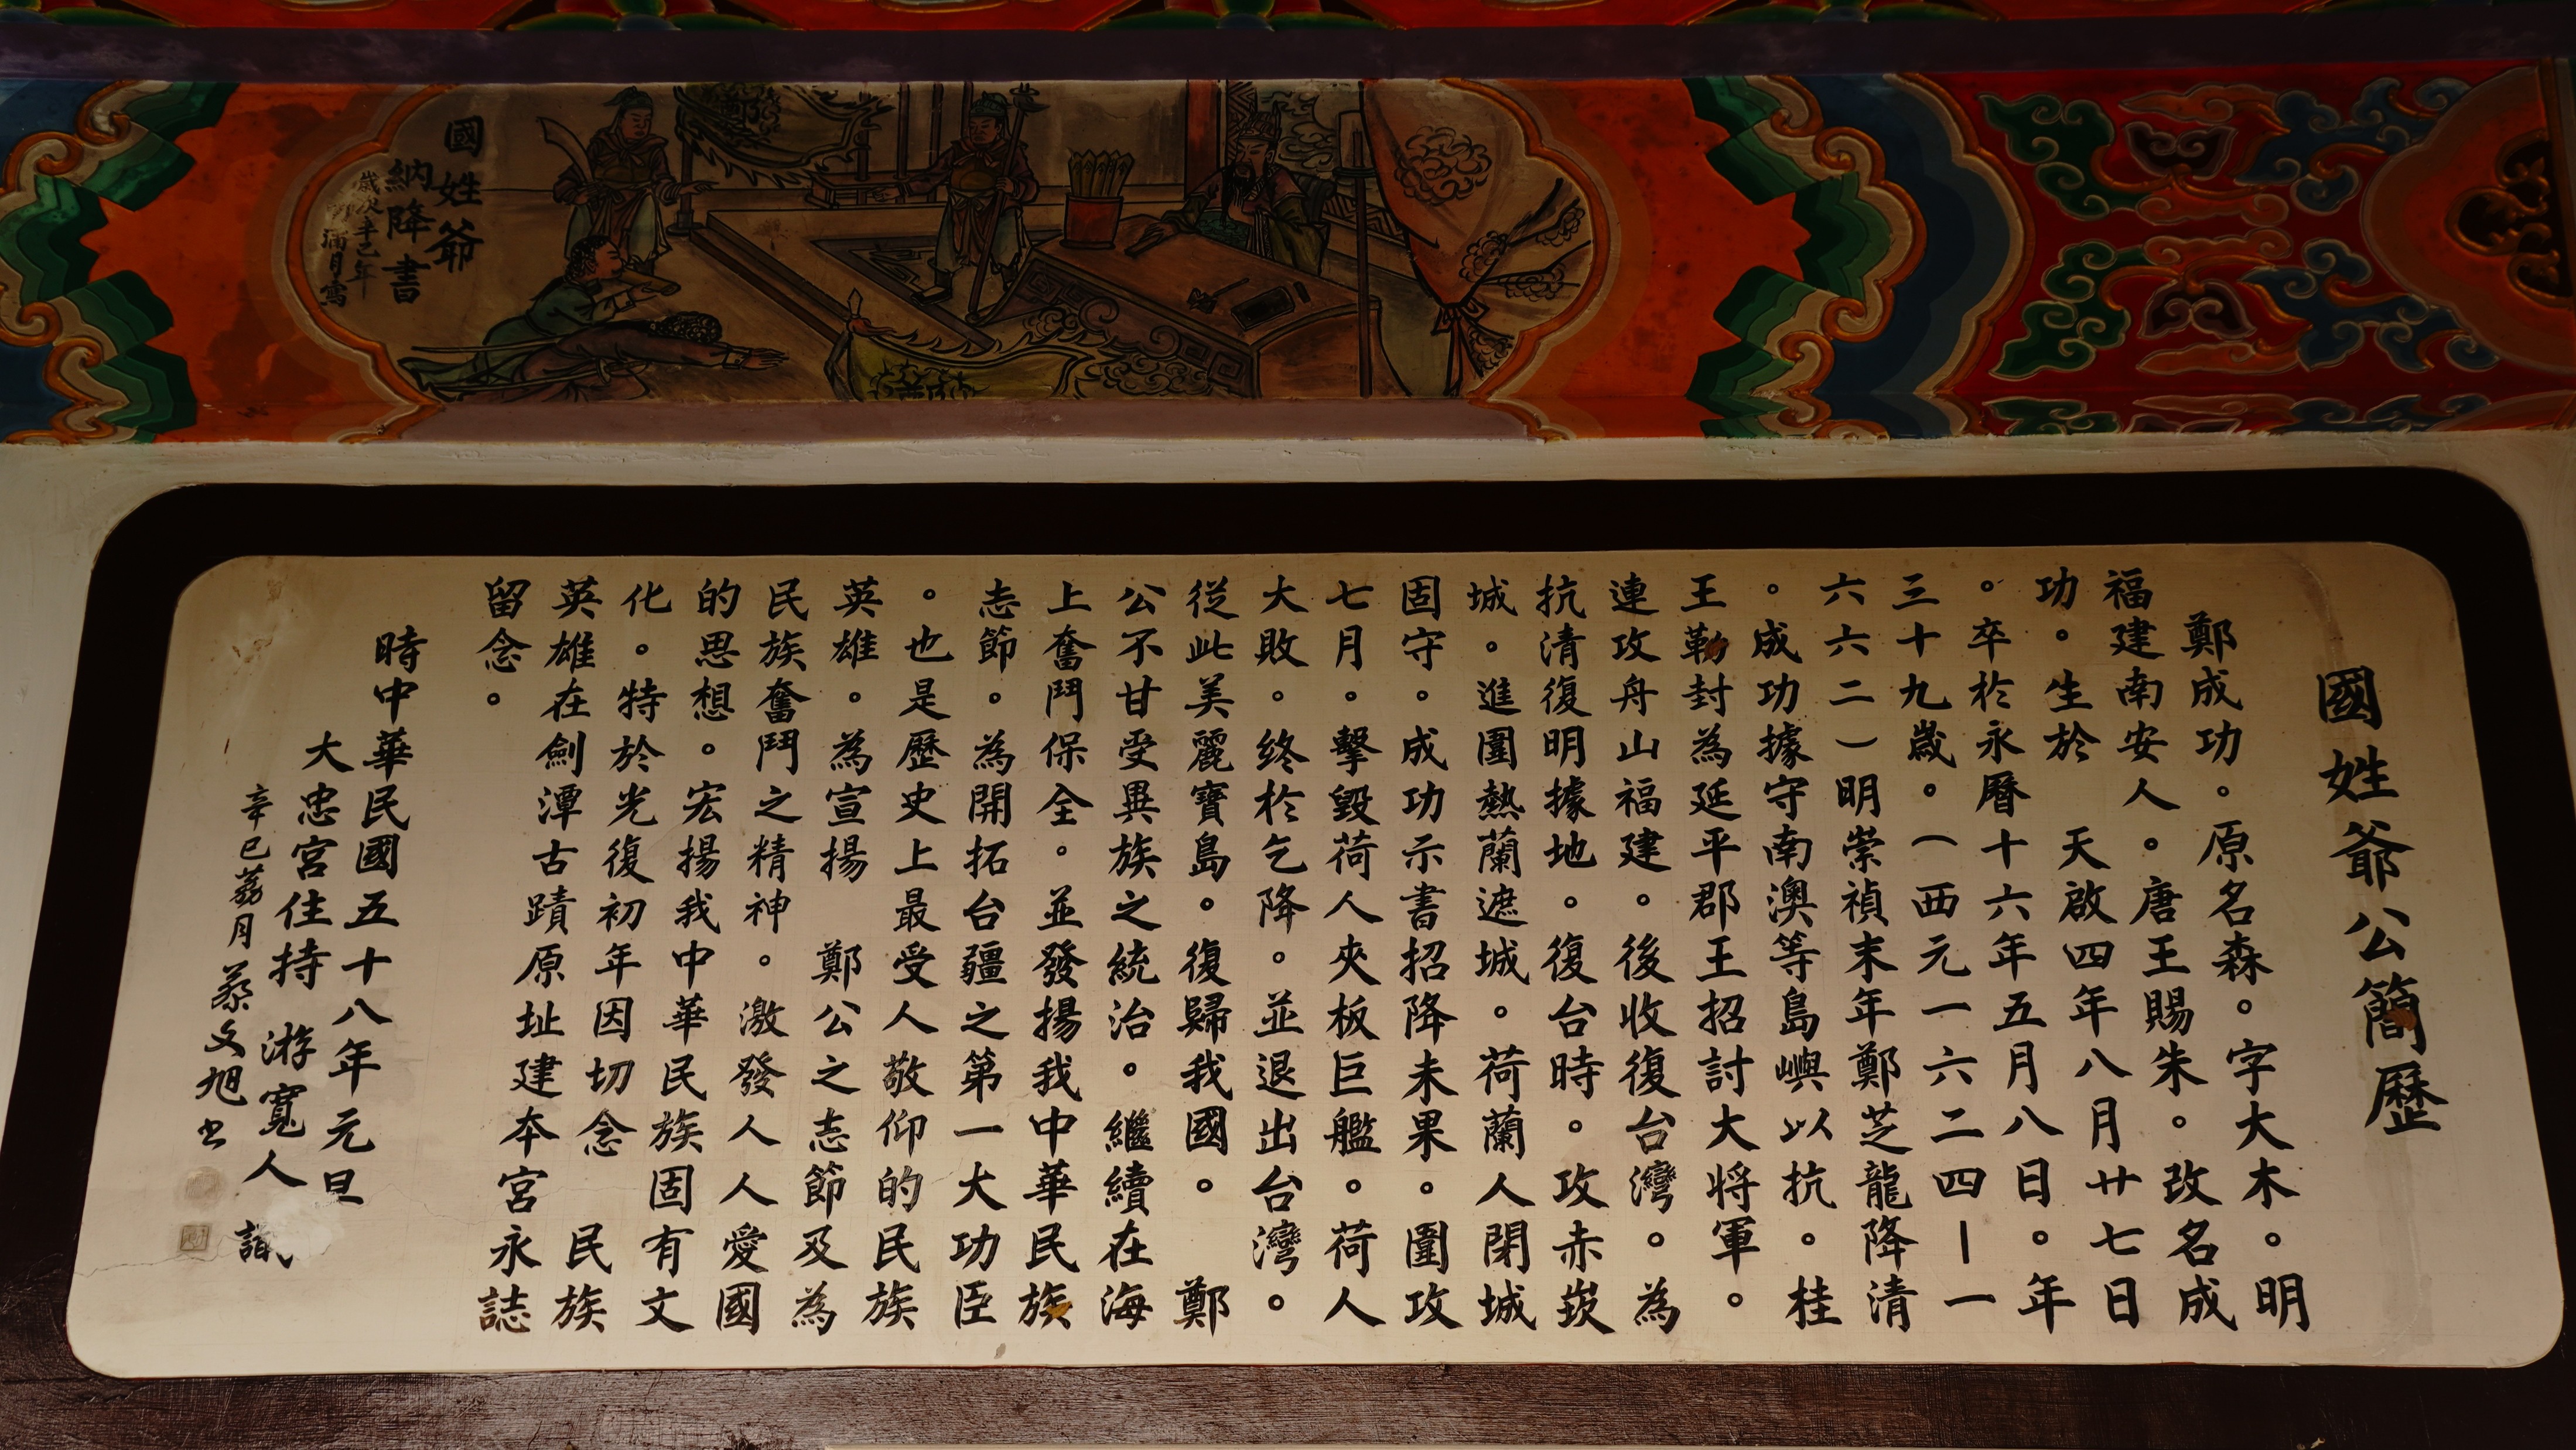 國姓爺
納降書
歲次辛巳年
滿月寫
國姓爺公簡歷
鄭成功。原名森。字大木。明
福建南安人。唐王賜朱。改名成
功。生於 天啟四年八月廿七日
。卒於永曆十六年五月八日。年
三十九歲。(西元一六二四—一
六六二)明崇禎末年鄭芝龍降清
。成功據守南澳等島嶼以抗。桂
王勅封為延平郡王招討大將軍。
連攻舟山福建。後收復台灣。為
抗清復明據地。復台時。攻赤崁
城。進圍熱蘭遮城。荷蘭人閉城
固守。成功示書招降未果。圍攻
七月。擊毀荷人夾板巨艦。荷人
大敗。終於乞降。並退出台灣。
從此美麗寶島。復歸我國。 鄭
公不甘受異族之統治。繼續在海
上奮鬥保全。並發揚我中華民族
志節。為開拓台疆之第一大功臣
。也是歷史上最受人敬仰的民族
英雄。為宣揚 鄭公之志節及為
民族奮鬥之精神。激發人人愛國
的思想。宏揚我中華民族固有文
化。特於光復初年因切念 民族
英雄在劍潭古蹟原址建本宮永誌
留念。
時中華民國五十八年元旦
大忠宮住持 游寬人 識
辛巳荔月 蔡文旭書